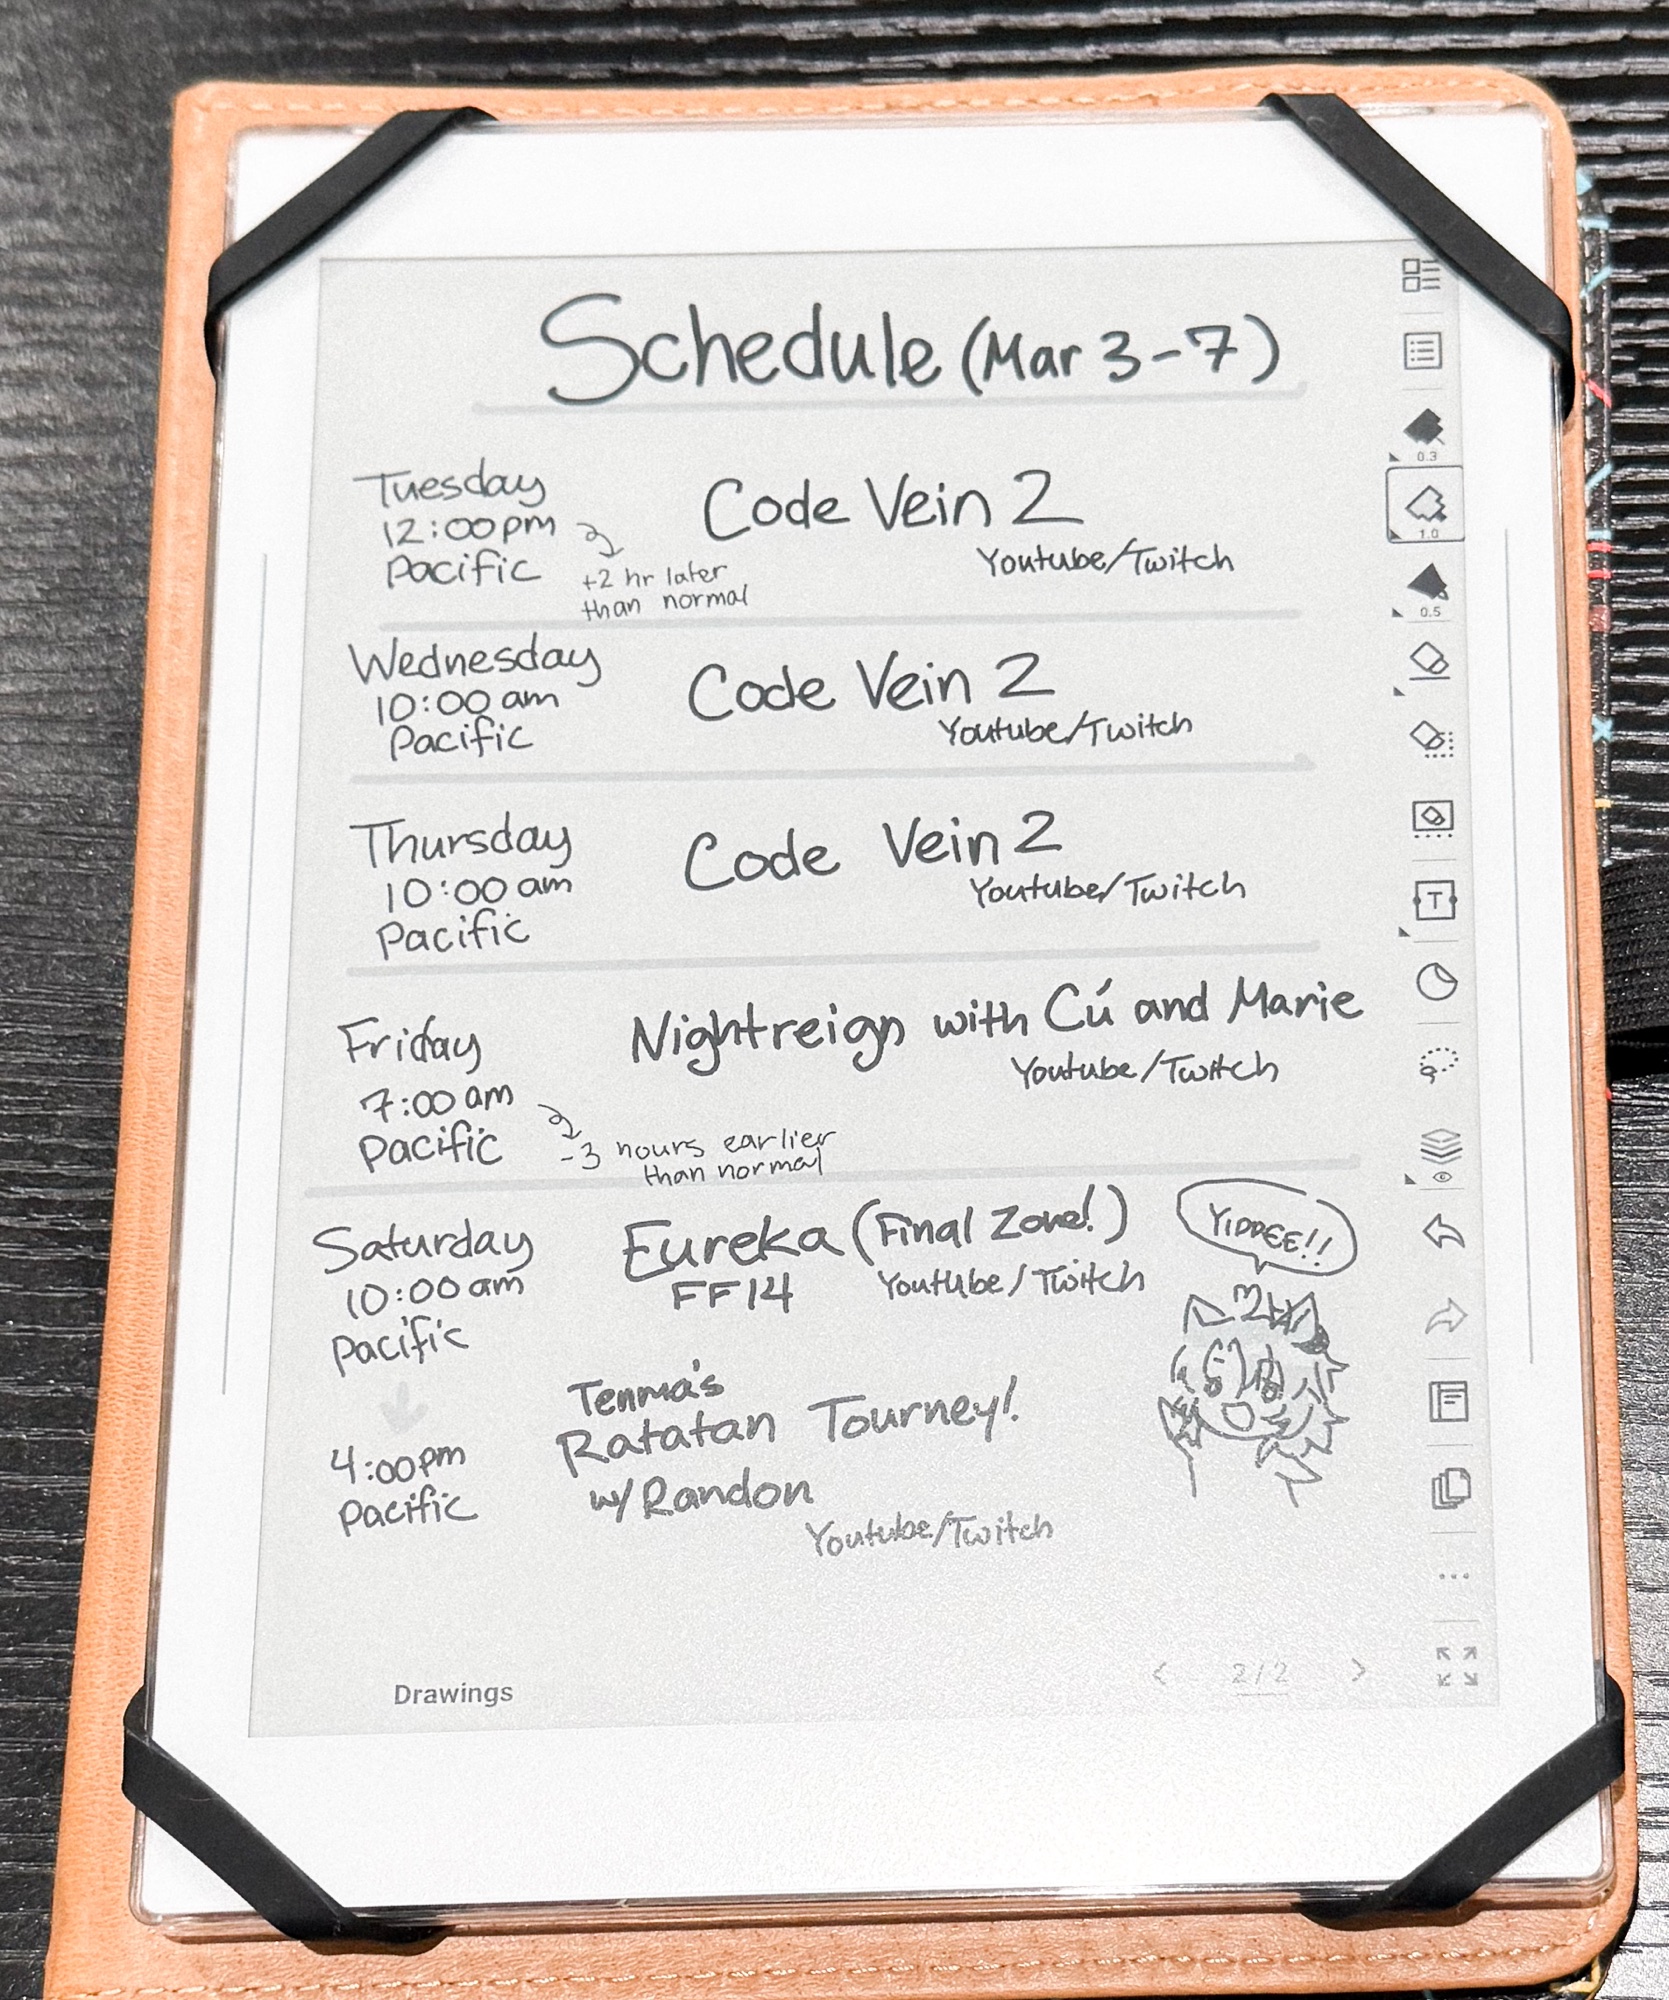 Schedule (Mar 3-7)
Tuesday
12:00pm
Pacific
+2 hr later
than normal
Code Vein 2
Youtube/Twitch
Wednesday
10:00 am
Pacific
Code Vein 2
Youtube/Twitch
Thursday
10:00 am
Pacific
Code Vein 2
Youtube/Twitch
Friday
7:00 am
Pacific
-3 hours earlier
than normal
Nightreign with Cú and Marie
Youtube/Twitch
Saturday
10:00 am
Pacific
Eureka (Final Zone!)
FF14
Youtube/Twitch
YIPPEE!!
4:00pm
Pacific
Tenma's
Ratatan Tourney!
w/ Randon
Youtube/Twitch
0.3
1.0
0.5
T
Drawings
< 2/2 >